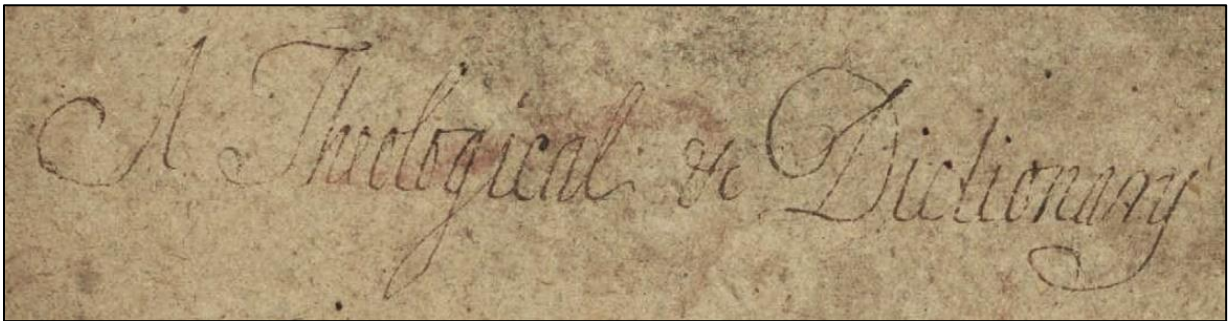 A Theological &c Dictionary